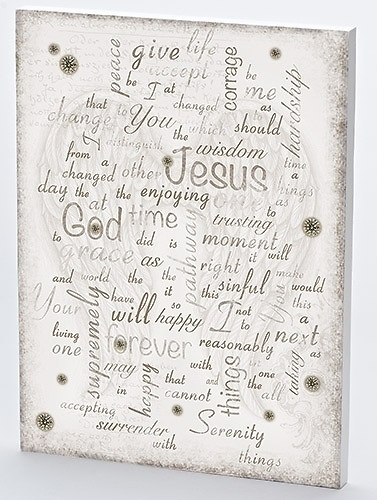 peace give life courage
accept
be I at be me hardship
that changed as
change You which should
the
I distinguish wisdom
from a time
changed other Jesus a things
day the at the enjoying one as
God time trusting
to did is moment
grace as pathway it will
right
and world the the this sinful You make would
Your have it so I not this
supremely will happy to a
living forever reasonably next
one as
may with things taking
in happy that and one
cannot the all
accepting
surrender Serenity
with things